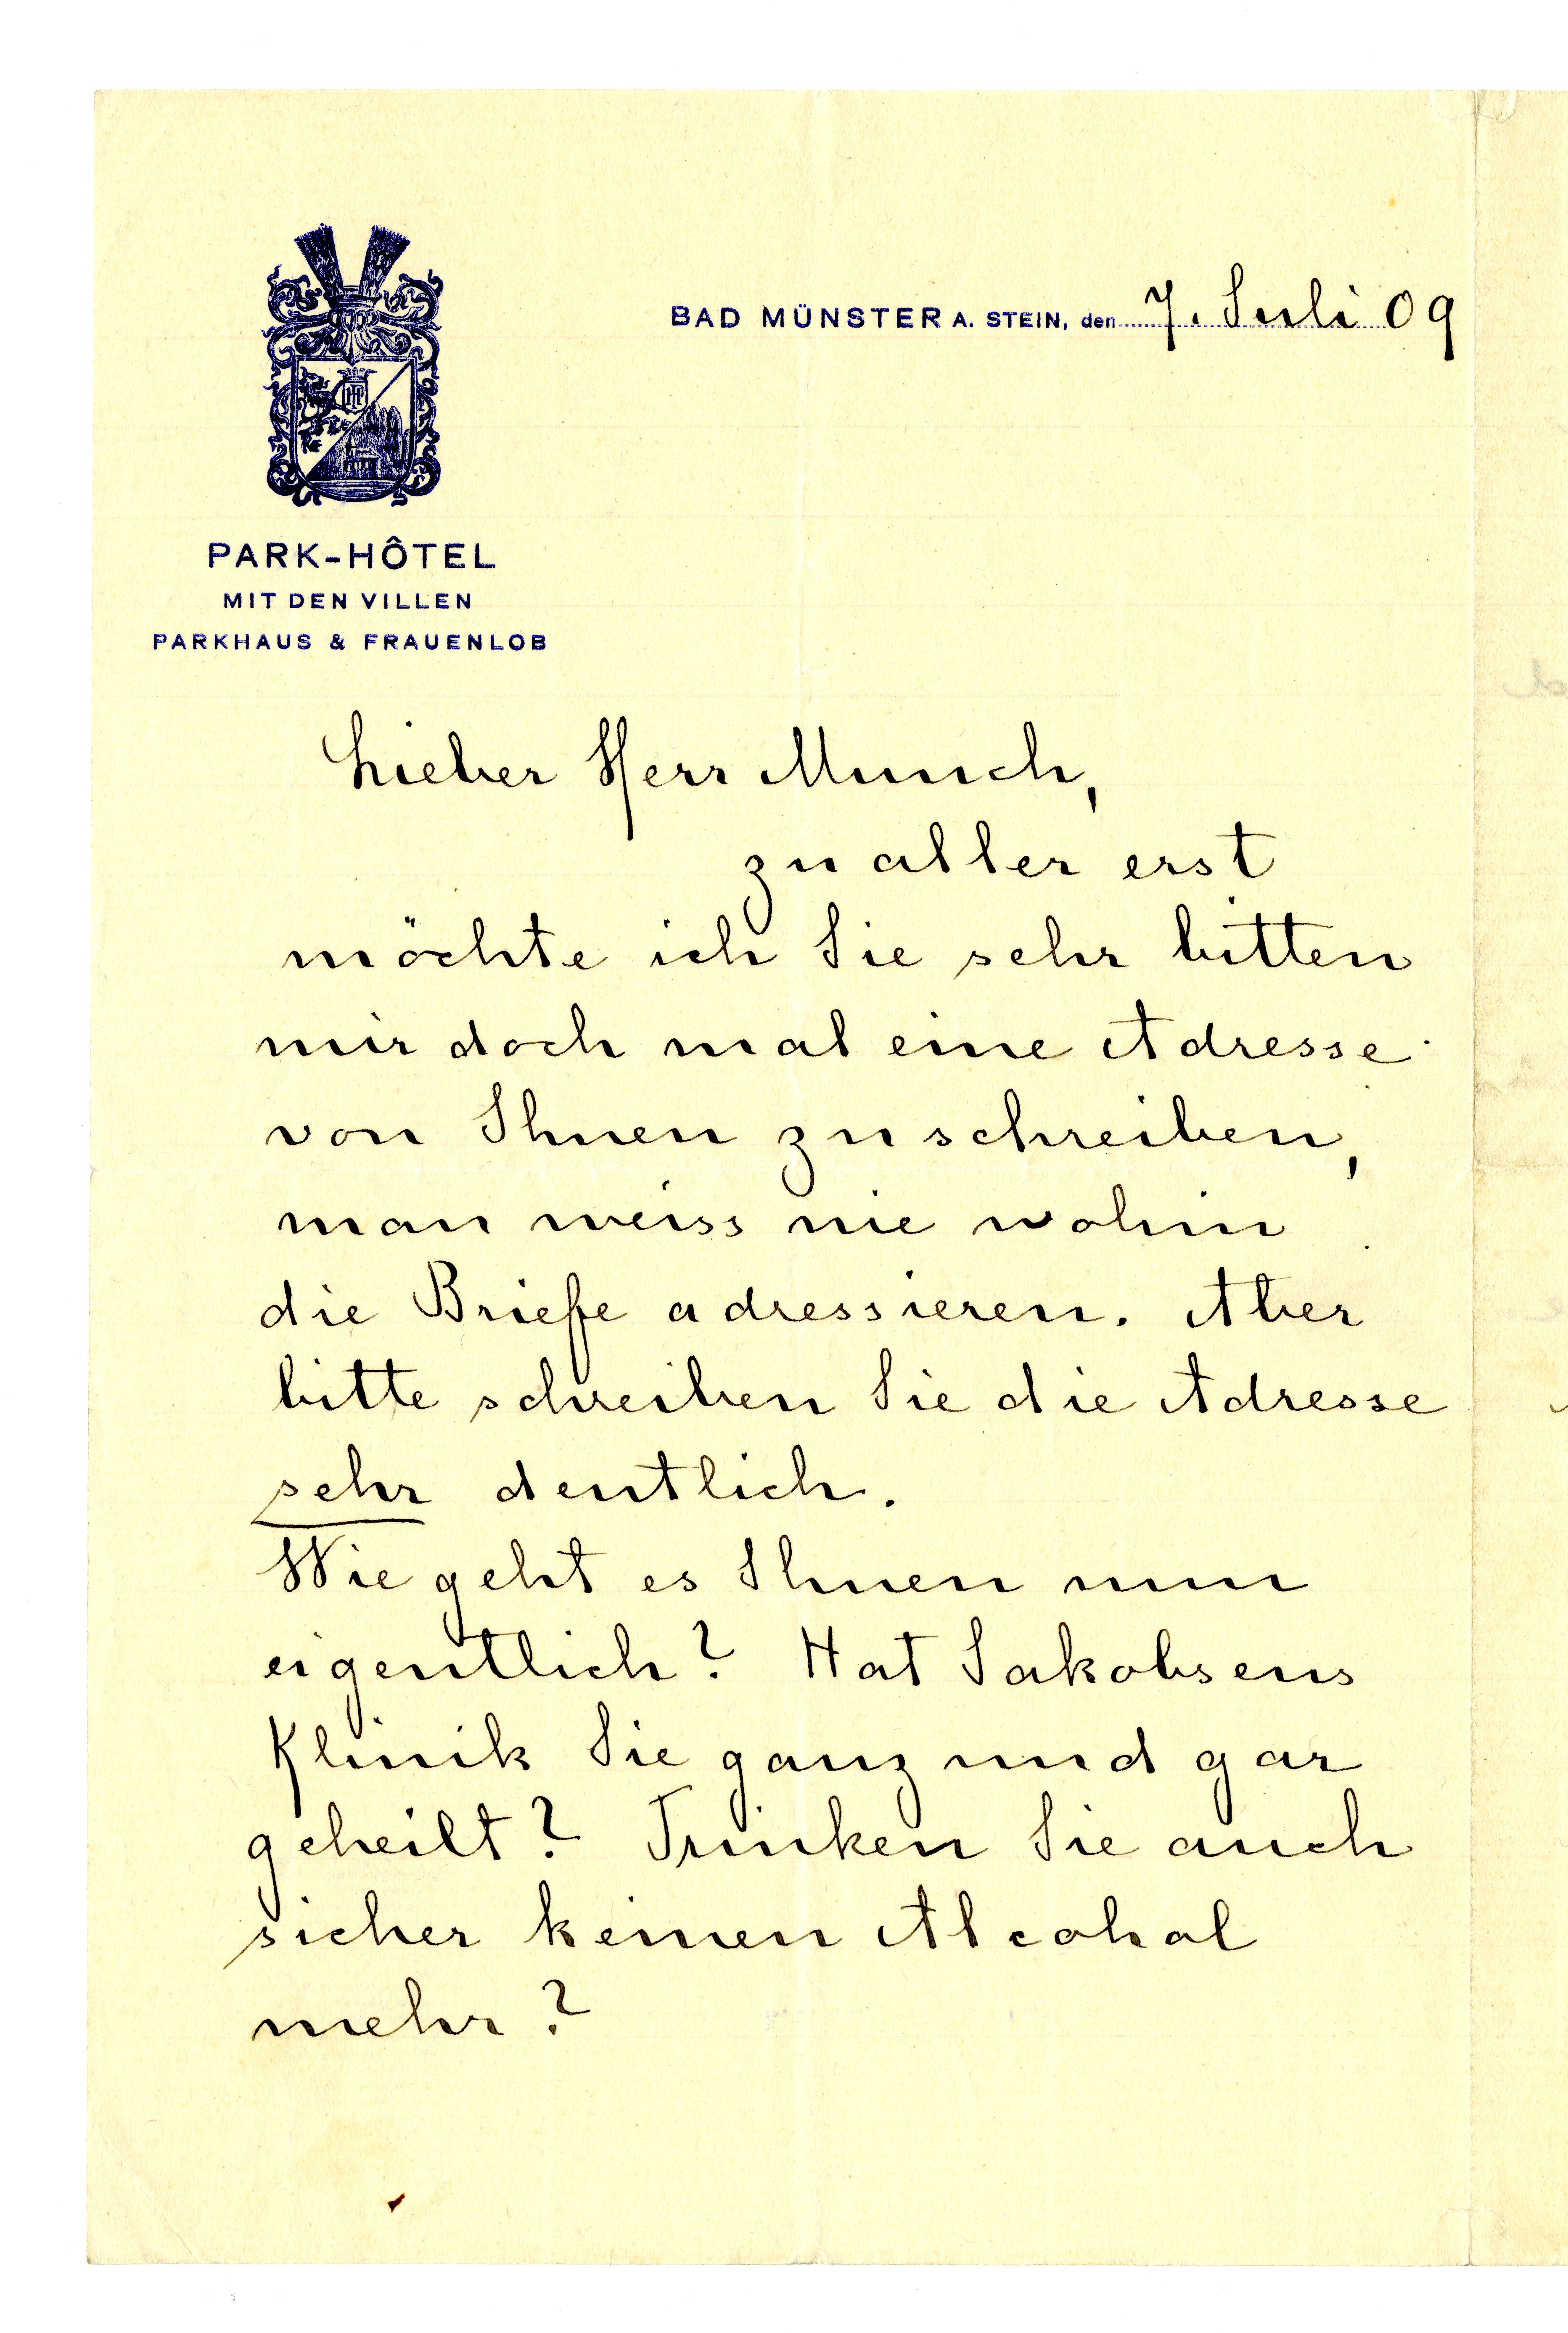 BAD MÜNSTER A. STEIN, den 7. Juli 09
PARK-HÔTEL
MIT DEN VILLEN
PARKHAUS & FRAUENLOB
Lieber Herr Munch,
zu aller erst
möchte ich Sie sehr bitten
mir doch mal eine Adresse
von Ihnen zu schreiben,
man weiss nie wohin
die Briefe adressieren. Aber
bitte schreiben Sie die Adresse
sehr deutlich.
Wie geht es Ihnen nun
eigentlich? Hat Jakobsens
Klinik Sie ganz und gar
geheilt? Trinken Sie auch
sicher keinen Alcohol
mehr?